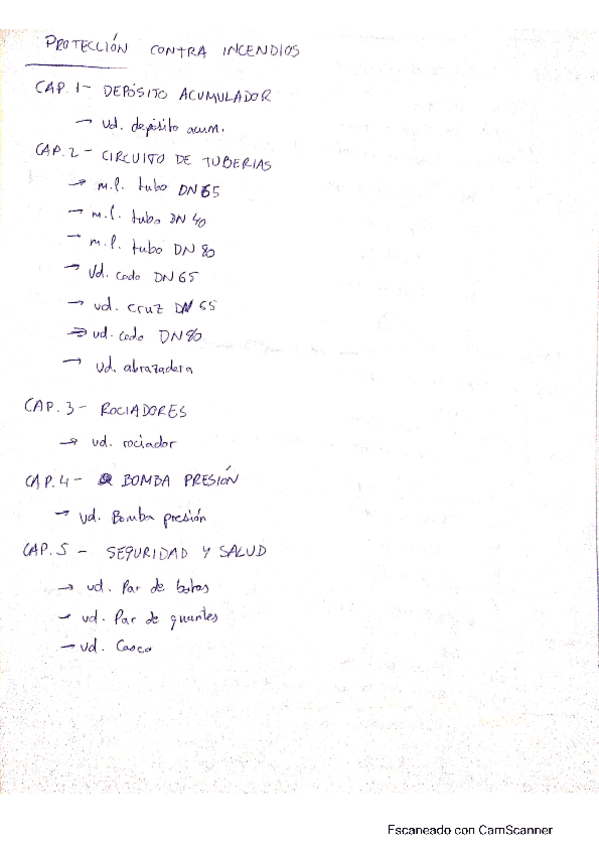 PROTECCIÓN CONTRA INCENDIOS
CAP. 1 - DEPÓSITO ACUMULADOR
→ ud. depósito acum.
CAP. 2 - CIRCUITO DE TUBERIAS
→ m.l. tubo DN 65
→ m.l. tubo DN 40
→ m.l. tubo DN 80
→ Ud. codo DN 65
→ ud. cruz DN 65
→ ud. codo DN 80
→ ud. abrazadera
CAP. 3 - ROCIADORES
→ ud. rociador
CAP. 4 - BOMBA PRESIÓN
→ ud. Bomba presión
CAP. 5 - SEGURIDAD Y SALUD
→ ud. Par de botas
→ ud. Par de guantes
→ ud. Casco
Escaneado con CamScanner